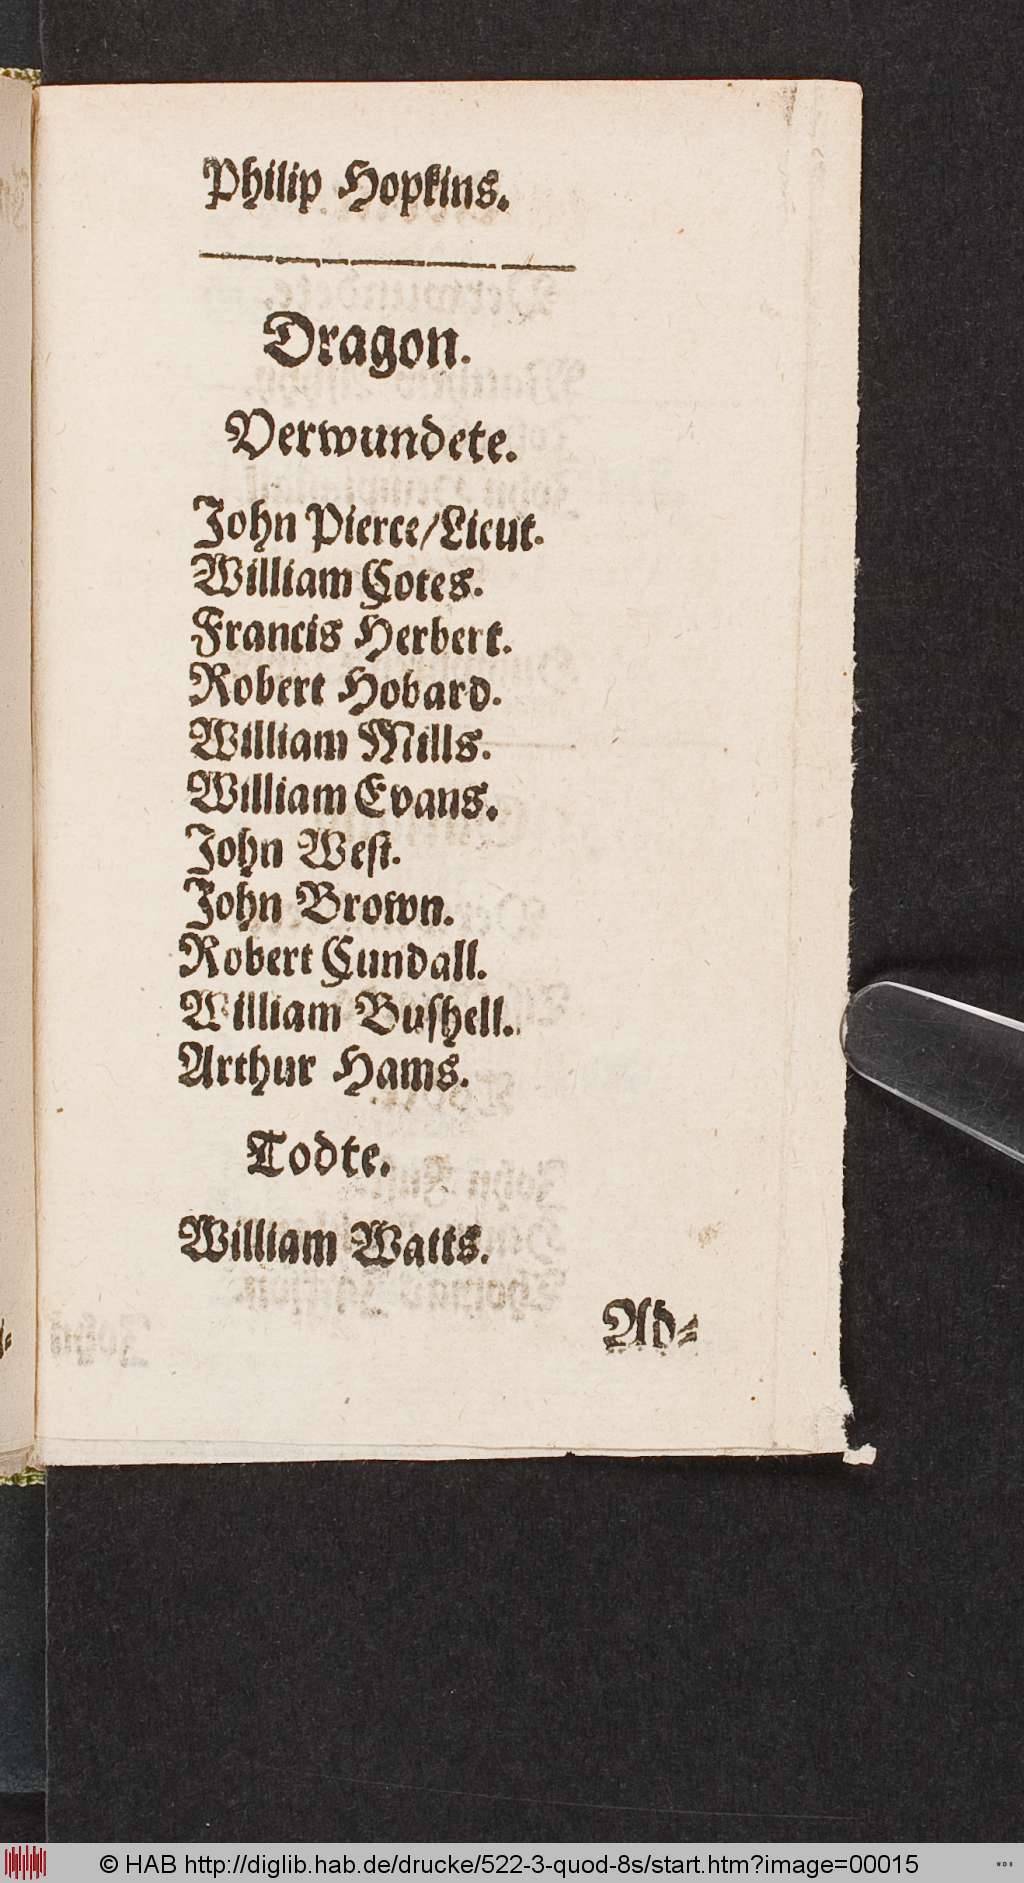 Philip Hopkins.
Dragon.
Verwundete.
John Pierce/Lieut.
William Cotes.
Francis Herbert.
Robert Hobard.
William Mills.
William Evans.
John West.
John Brown.
Robert Cundall.
William Bushell.
Arthur Hams.
Todte.
William Watts.
Ad-
© HAB http://diglib.hab.de/drucke/522-3-quod-8s/start.htm?image=00015